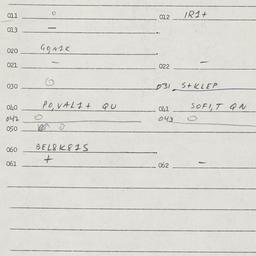 011 o 012 IRI+
013 —
020 GONIK
021 — 022 —
030 O 031 S+KLEP
040 PO,VALI+ QU 041 SOFI,T QN
042 O 043 O
050 O
060 BEL8K81S
061 + 062 —